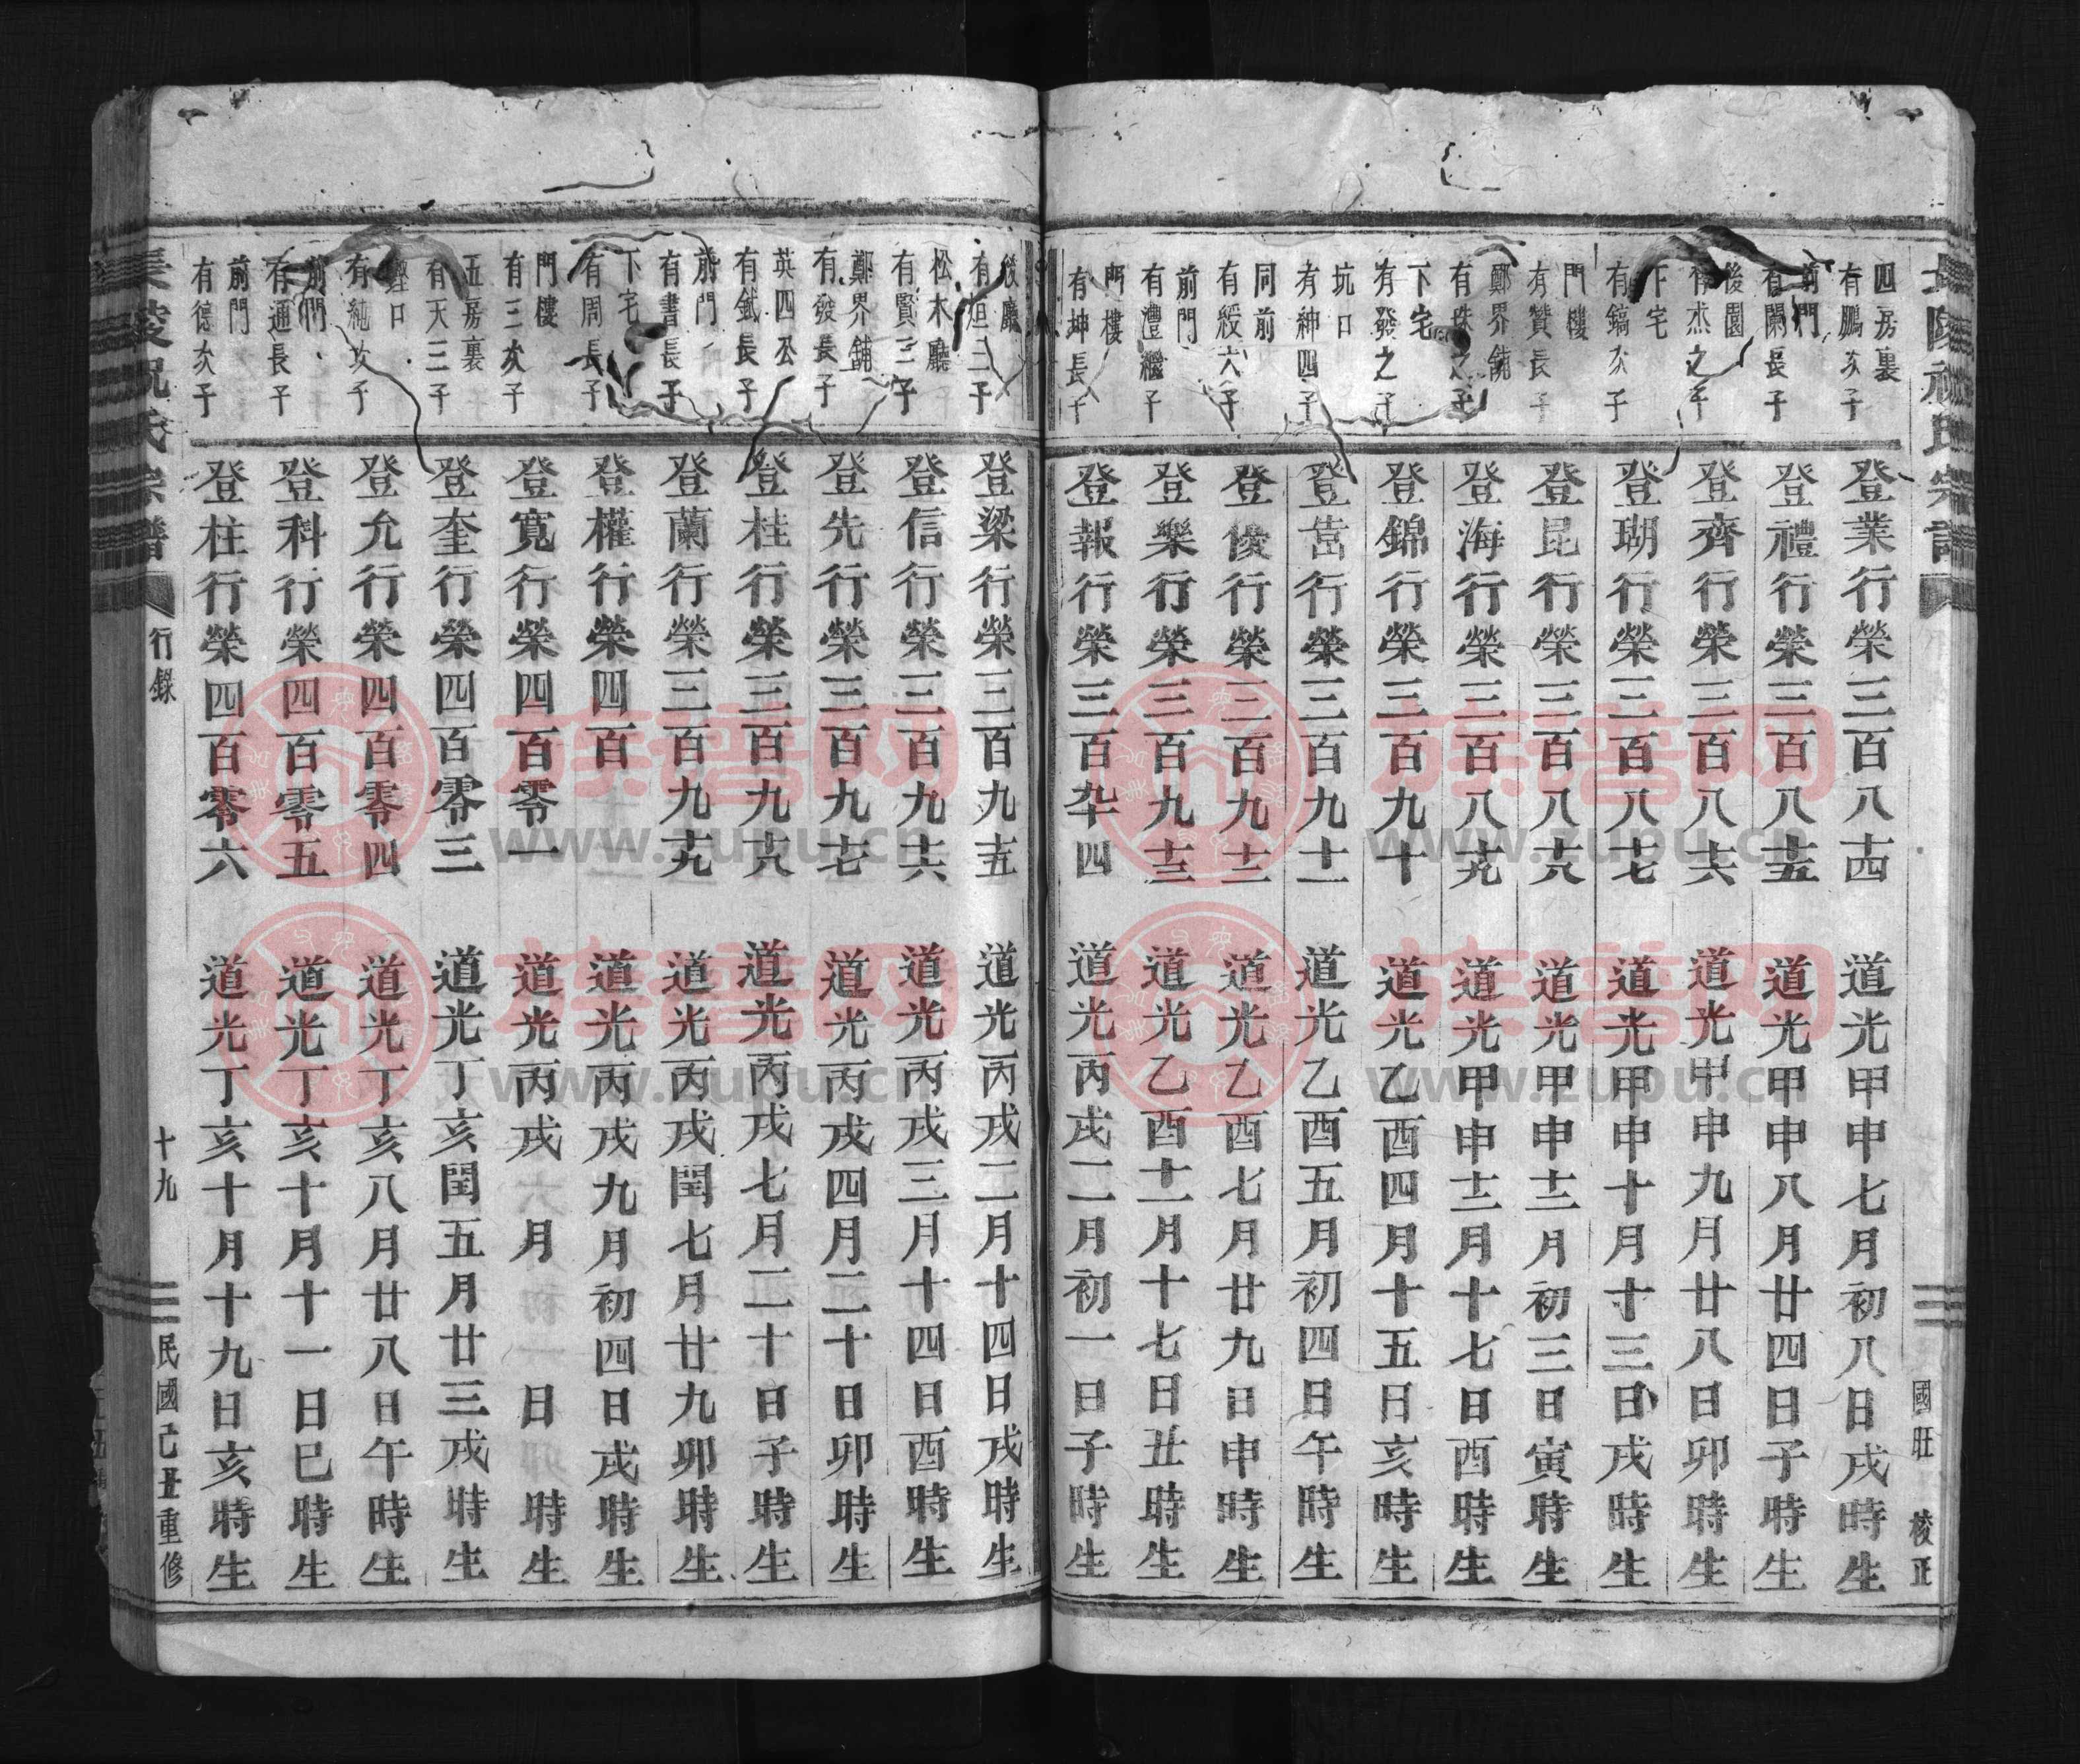 四房裏
有鵬次子
登業行榮三百八十四 道光甲申七月初八日戌時生
前門
有開長子
登禮行榮三百八十五 道光甲申八月廿四日子時生
後園
有杰之子
登齊行榮三百八十六 道光甲申九月廿八日卯時生
下宅
有鎬次子
登瑚行榮三百八十七 道光甲申十月十三日戌時生
門樓
有贊長子
登昆行榮三百八十八 道光甲申十二月初三日寅時生
鄭界鋪
有珠之子
登海行榮三百八十九 道光甲申十二月十七日酉時生
下宅
有發之子
登錦行榮三百九十 道光乙酉四月十五日亥時生
坑口
有紳四子
登嵩行榮三百九十一 道光乙酉五月初四日午時生
同前
有綬六子
登俊行榮三百九十二 道光乙酉七月廿九日申時生
前門
有澧繼子
登樂行榮三百九十三 道光乙酉十一月十七日丑時生
門樓
有坤長子
登報行榮三百九十四 道光丙戌二月初一日子時生
後廳
有烜三子
登梁行榮三百九十五 道光丙戌二月十四日戌時生
松木廳
有賢三子
登信行榮三百九十六 道光丙戌三月十四日酉時生
鄭界鋪
有發長子
登先行榮三百九十七 道光丙戌四月二十日卯時生
英四公
有鉞長子
登桂行榮三百九十八 道光丙戌七月二十日子時生
前門
有書長子
登蘭行榮三百九十九 道光丙戌閏七月廿九卯時生
下宅
有周長子
登權行榮四百 道光丙戌九月初四日戌時生
門樓
有三次子
登寬行榮四百零一 道光丙戌 月 日 時生
五房裏
有天三子
登奎行榮四百零三 道光丁亥閏五月廿三戌時生
口
有純次子
登允行榮四百零四 道光丁亥八月廿八日午時生
前門
有通長子
登科行榮四百零五 道光丁亥十月十一日巳時生
前門
有德次子
登柱行榮四百零六 道光丁亥十月十九日亥時生
氏宗譜
行錄
十九
民國己丑重修
國旺 校正
族谱网
www.zupu.cn